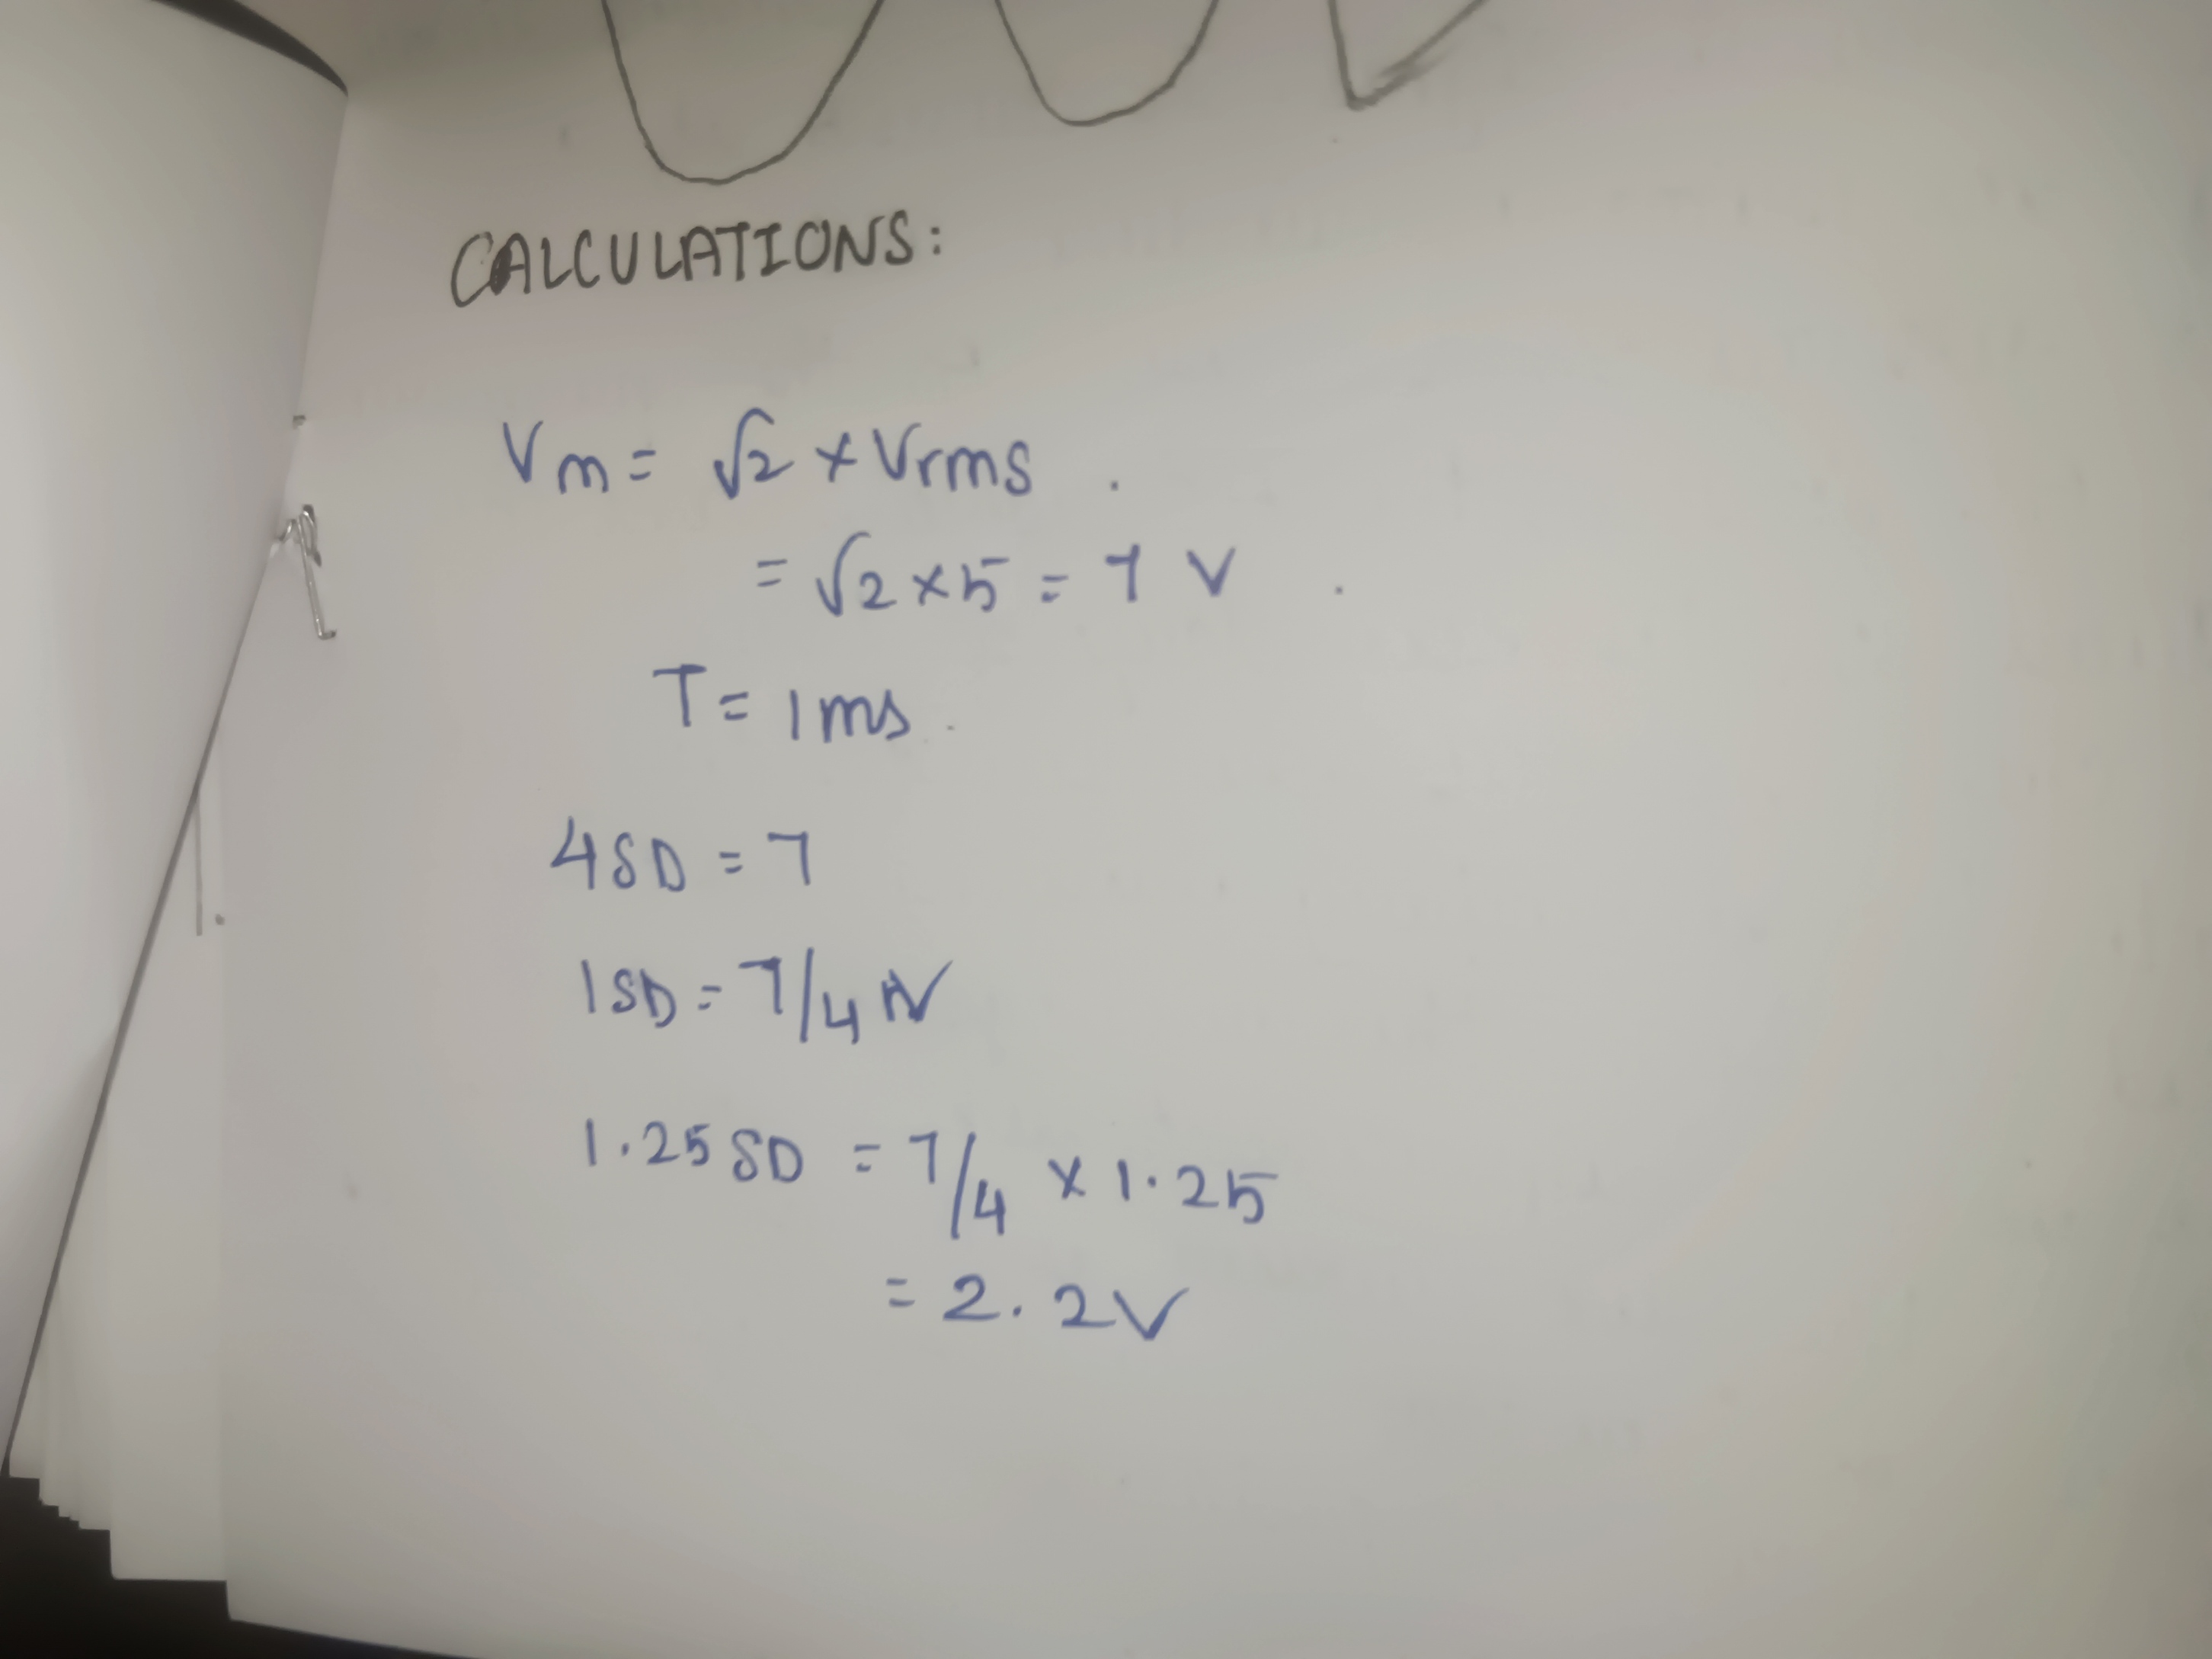 CALCULATIONS:
Vm = √2 × Vrms .
= √2 × 5 = 7 V .
T = 1 ms .
4SD = 7
1SD = 7/4 V
1.25 SD = 7/4 × 1.25
= 2.2V